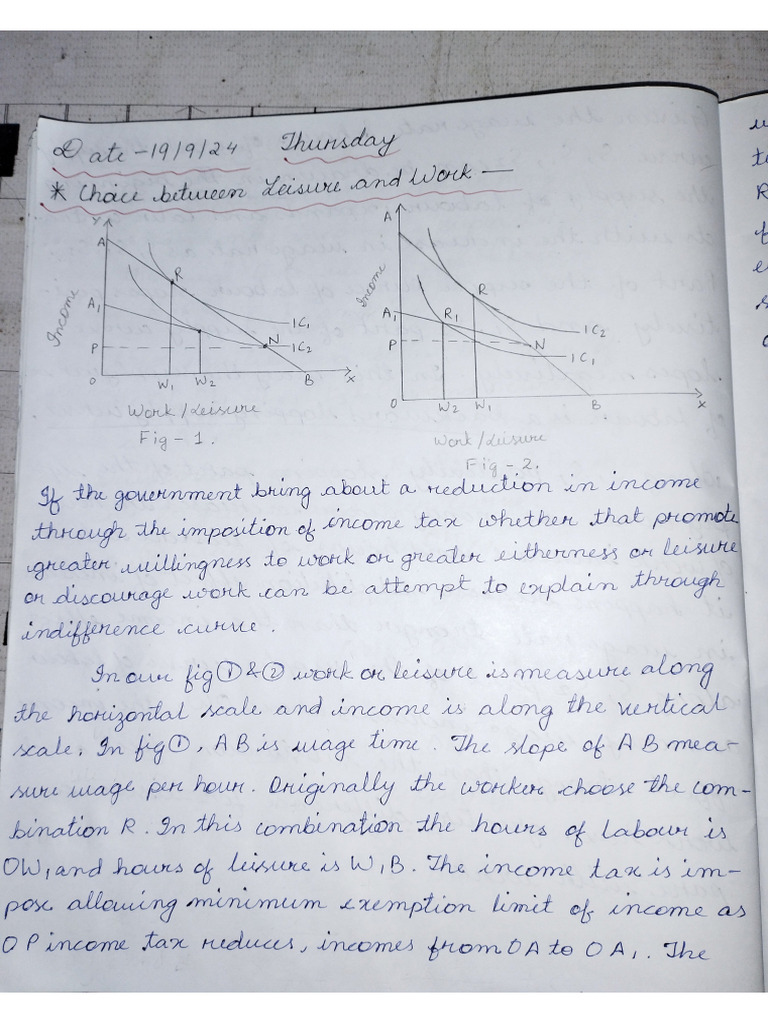 Date - 19/9/24 Thursday
* Choice between Leisure and Work —
Y
A
R
Income
A1
IC1
N
IC2
P
O
W1
W2
B
X
Work/Leisure
Fig - 1.
A
Income
R
A1
R1
IC2
P
N
IC1
O
W2
W1
B
X
Work/Leisure
Fig - 2.
If the government bring about a reduction in income
through the imposition of income tax whether that promote
greater willingness to work or greater eitherness or leisure
or discourage work can be attempt to explain through
indifference curve.
In our fig ① & ② work or leisure is measure along
the horizontal scale and income is along the vertical
scale. In fig ①, AB is wage time. The slope of AB mea-
sure wage per hour. Originally the worker choose the com-
bination R. In this combination the hours of labour is
OW1 and hours of leisure is W1B. The income tax is im-
pose allowing minimum exemption limit of income as
OP income tax reduces, incomes from OA to OA1. The